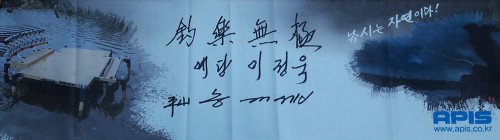 釣樂無極
예당 이정욱
낚시는 자연이다!
APIS
www.apis.co.kr